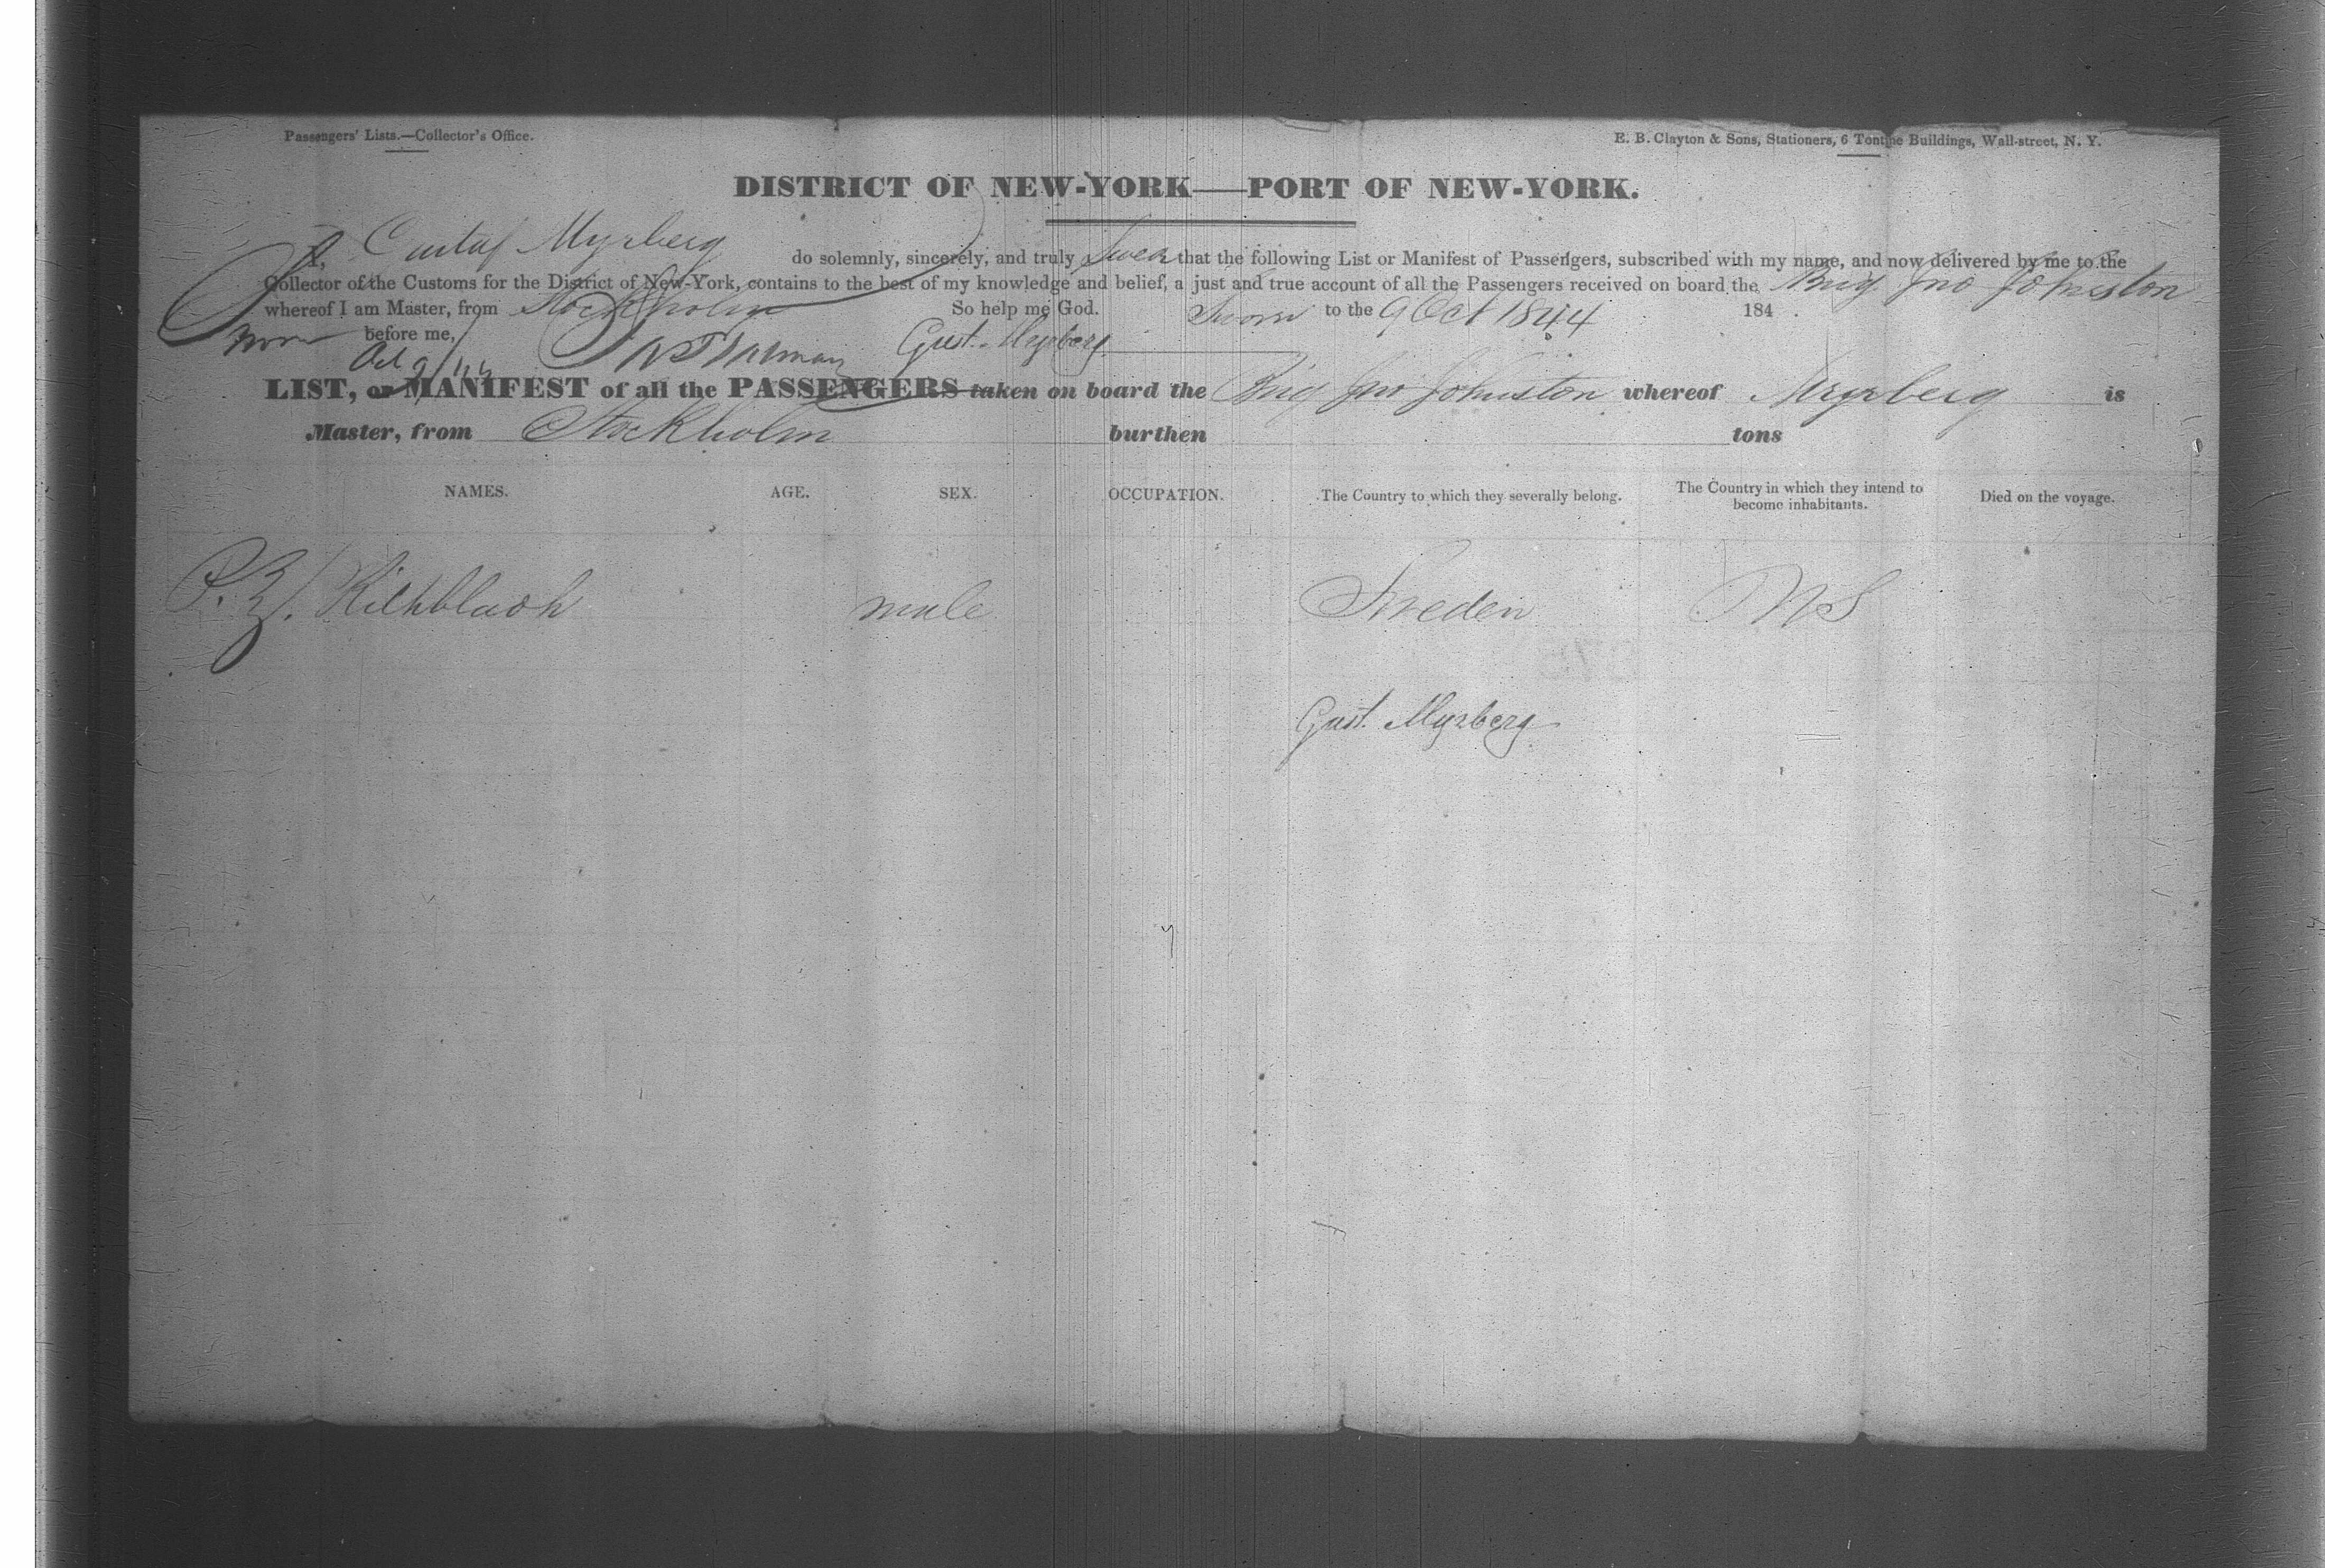 Passengers' Lists.—Collector's Office.
E. B. Clayton & Sons, Stationers, 6 Tontine Buildings, Wall-street, N. Y.
DISTRICT OF NEW-YORK—PORT OF NEW-YORK.
I, Gustaf Myrberg do solemnly, sincerely, and truly Swear that the following List or Manifest of Passengers, subscribed with my name, and now delivered by me to the
Collector of the Customs for the District of New-York, contains to the best of my knowledge and belief, a just and true account of all the Passengers received on board the Brig Jno Johnston
whereof I am Master, from Stockholm So help me God. Sworn to the 9 Oct 1844 184 .
Sworn before me, Gust. Myrberg
Oct 9/44
LIST, or MANIFEST of all the PASSENGERS taken on board the Brig Jno Johnston whereof Myrberg is
Master, from Stockholm burthen tons
NAMES. AGE. SEX. OCCUPATION. The Country to which they severally belong. The Country in which they intend to become inhabitants. Died on the voyage.
male Sweden
Gust. Myrberg